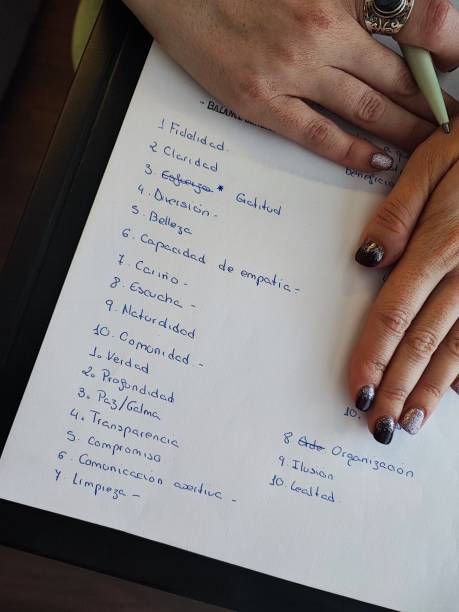 - BALANCE
beneficio
1 Fidelidad.
2 Claridad
3. Esfuerzo * Gratitud
4. Diversión.
5. Belleza
6. Capacidad de empatia=
7. Cariño -
8. Escucha -
9. Naturalidad
10. Comunidad. -
1. Verdad
2. Profundidad
3. Paz/Calma
4. Transparencia
5. Compromiso
6. Comunicación asertiva -
7 Limpieza -
10.
8 Orde Organización
9. Ilusión
10. Lealtad.